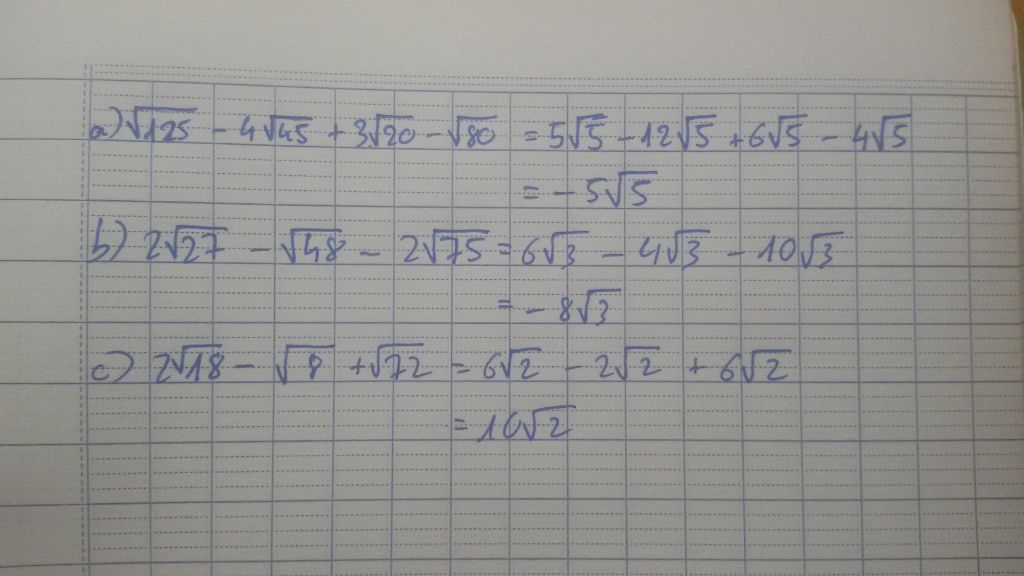 a) √125 - 4√45 + 3√20 - √80 = 5√5 - 12√5 + 6√5 - 4√5
= - 5√5
b) 2√27 - √48 - 2√75 = 6√3 - 4√3 - 10√3
= - 8√3
c) 2√18 - √8 + √72 = 6√2 - 2√2 + 6√2
= 10√2